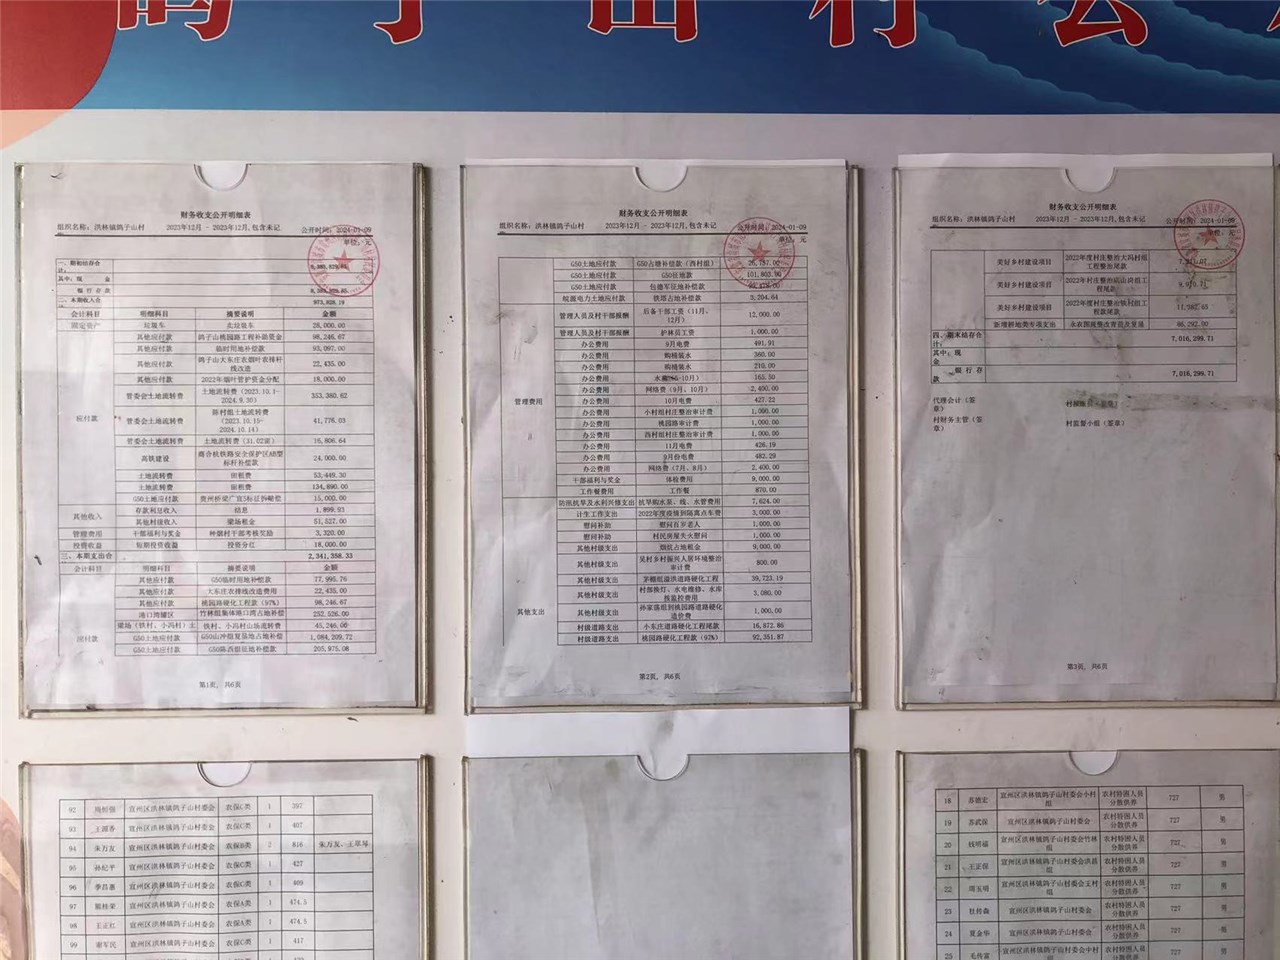 鸽子山村公
财务收支公开明细表
组织名称: 洪林镇鸽子山村 2023年12月 - 2023年12月,包含未记 公开时间: 2024-01-09
单位: 元
一、期初结存合计:
其中: 现金
银行存款
二、本期收入合 973,828.19
会计科目 明细科目 摘要说明 金额
固定资产 垃圾车 卖垃圾车 28,000.00
应付款 其他应付款 鸽子山桃园路工程补助资金 98,246.67
其他应付款 临时用地补偿款 93,097.00
其他应付款 鸽子山大东庄农烟叶农排杆线改造 22,435.00
其他应付款 2022年烟叶管护资金分配 18,000.00
管委会土地流转费 土地流转费 (2023.10.1-2024.9.30) 353,380.62
管委会土地流转费 陈村组土地流转费 (2023.10.15-2024.10.14) 41,776.03
管委会土地流转费 土地流转费 (31.02亩) 15,806.64
高铁建设 商合杭铁路安全保护区AB型标杆补偿款 24,000.00
土地流转费 田租费 53,449.30
土地流转费 田租费 134,890.00
G50土地应付款 贵州桥梁广宣5标征拆赔偿 15,000.00
其他收入 存款利息收入 结息 1,899.93
其他村级收入 梁场租金 51,527.00
管理费用 干部福利与奖金 种烟村干部考核奖励 3,320.00
投资收益 短期投资收益 投资分红 18,000.00
三、本期支出合 2,341,358.33
会计科目 明细科目 摘要说明 金额
应付款 其他应付款 G50临时用地补偿款 77,995.76
其他应付款 大东庄农排线改造费用 22,435.00
其他应付款 桃园路硬化工程款 (97%) 98,246.67
港口湾灌区 竹林组集体港口湾占地补偿 252,526.00
梁场 (铁村、小冯村) 土 铁村、小冯村山场流转费 45,246.00
G50土地应付款 G50山冲组复垦地占地补偿 1,084,209.72
G50土地应付款 G50陈西组征地补偿款 205,975.08
第1页, 共6页
财务收支公开明细表
组织名称: 洪林镇鸽子山村 2023年12月 - 2023年12月,包含未记 公开时间: 2024-01-09
单位: 元
G50土地应付款 G50占塘补偿款 (西村组) 26,757.00
G50土地应付款 G50征地款 101,803.00
G50土地应付款 包德军征地补偿款
皖源电力土地应付款 铁塔占地补偿款 3,204.64
管理费用 管理人员及村干部报酬 后备干部工资 (11月、12月) 12,000.00
管理人员及村干部报酬 护林员工资 1,000.00
办公费用 9月电费 491.91
办公费用 购桶装水 360.00
办公费用 购桶装水 210.00
办公费用 水费(6-10月) 165.50
办公费用 网络费 (9月、10月) 2,400.00
办公费用 10月电费 427.22
办公费用 小村组村庄整治审计费 1,000.00
办公费用 桃园路审计费 1,000.00
办公费用 西村组村庄整治审计费 1,000.00
办公费用 11月电费 426.19
办公费用 9月份电费 482.29
办公费用 网络费 (7月、8月) 2,400.00
干部福利与奖金 体检费用 9,000.00
工作餐费用 工作餐 870.00
其他支出 防汛抗旱及水利兴修支出 抗旱购水泵、线、水管费用 7,624.00
计生工作支出 2022年度疫情封隔离点车费 3,000.00
慰问补助 慰问百岁老人 1,000.00
慰问补助 村民房屋失火慰问 1,000.00
其他村级支出 烟炕占地租金 9,000.00
其他村级支出 吴村乡村振兴人居环境整治审计费 800.00
其他村级支出 茅棚组溢洪道路硬化工程 39,723.19
其他村级支出 村部换灯、水电维修、水库拆监控费用 3,080.00
其他村级支出 孙家落组到桃园路道路硬化造价费 1,000.00
村级道路支出 小东庄道路硬化工程尾款 16,872.86
村级道路支出 桃园路硬化工程款 (97%) 92,351.87
第2页, 共6页
财务收支公开明细表
组织名称: 洪林镇鸽子山村 2023年12月 - 2023年12月,包含未记 公开时间: 2024-01-09
单位: 元
美好乡村建设项目 2022年度村庄整治大冯村组工程整治尾款
美好乡村建设项目 2022年村庄整治 组工程尾款
美好乡村建设项目 2022年度村庄整治铁村组工程款尾款 11,982.63
新增耕地类专项支出 永农图斑整改青苗费 66,292.00
四、期末结存合计: 7,016,299.71
其中: 现金
银行存款 7,016,299.71
代理会计 (签章)
村财务主管 (签章)
村监督小组 (签章)
第3页, 共6页
92 宣州区洪林镇鸽子山村委会 农保C类 1 397
93 宣州区洪林镇鸽子山村委会 农保C类 1 407
94 朱万友 宣州区洪林镇鸽子山村委会 农保B类 2 816 朱万友、王翠琴
95 孙纪平 宣州区洪林镇鸽子山村委会 农保C类 1 427
96 季昌喜 宣州区洪林镇鸽子山村委会 农保C类 1 409
97 熊桂荣 宣州区洪林镇鸽子山村委会 农保A类 1 474.5
98 王正红 宣州区洪林镇鸽子山村委会 农保A类 1 474.5
99 谢军民 宣州区洪林镇鸽子山村委会 农保C类 1 417
18 苏德宏 宣州区洪林镇鸽子山村委会小村组 农村特困人员分散供养 727 男
19 苏武保 宣州区洪林镇鸽子山村委会 农村特困人员分散供养 727 男
20 钱明福 宣州区洪林镇鸽子山村委会竹林组 农村特困人员分散供养 727 男
21 王正保 宣州区洪林镇鸽子山村委会洪昌组 农村特困人员分散供养 727 男
22 周玉明 宣州区洪林镇鸽子山村委会王村组 农村特困人员分散供养 727 男
23 杜传森 宣州区洪林镇鸽子山村委会 农村特困人员分散供养 727 男
24 夏金华 宣州区洪林镇鸽子山村委会 农村特困人员分散供养 727 男
25 毛传富 宣州区洪林镇鸽子山村委会中村 农村特困人员分散供养 727 男